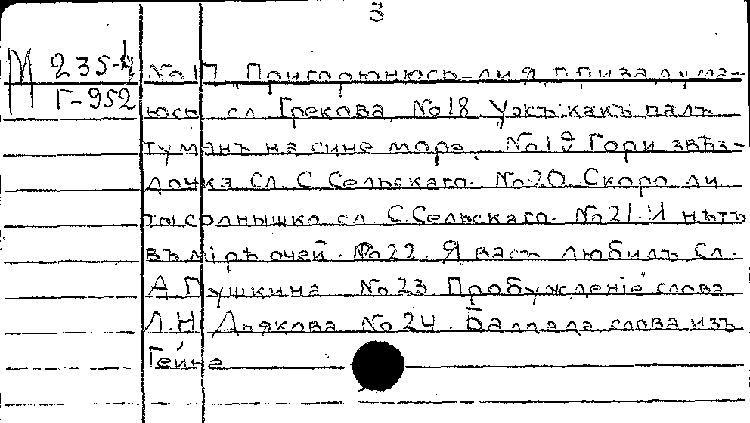 3
М 235-4
Г-952
№17 Пригорюнюсь-ли я, призадума-
юсь сл. Грекова №18 Ужъ какъ палъ
туманъ на сине море. №19 Гори звѣз-
дочка Сл. С. Сельскаго. №20. Скоро ли
ты солнышко сл. С. Сельскаго. №21. И нѣтъ
въ мірѣ очей. №22. Я васъ любилъ Сл.
А. Пушкина №23. Пробужденіе слова
Л.Н Дьякова №24. Баллада слова изъ
Гейне